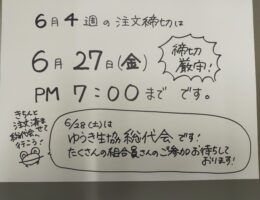 6月4週の注文締切は
6月27日(金)
PM 7:00まで です。
締切
厳守!
きちんと
注文済ませて
総代会へ
行こう!
6/28(土)は
ゆうき生協 総代会です!
たくさんの組合員さんのご参加お待ちして
おります!